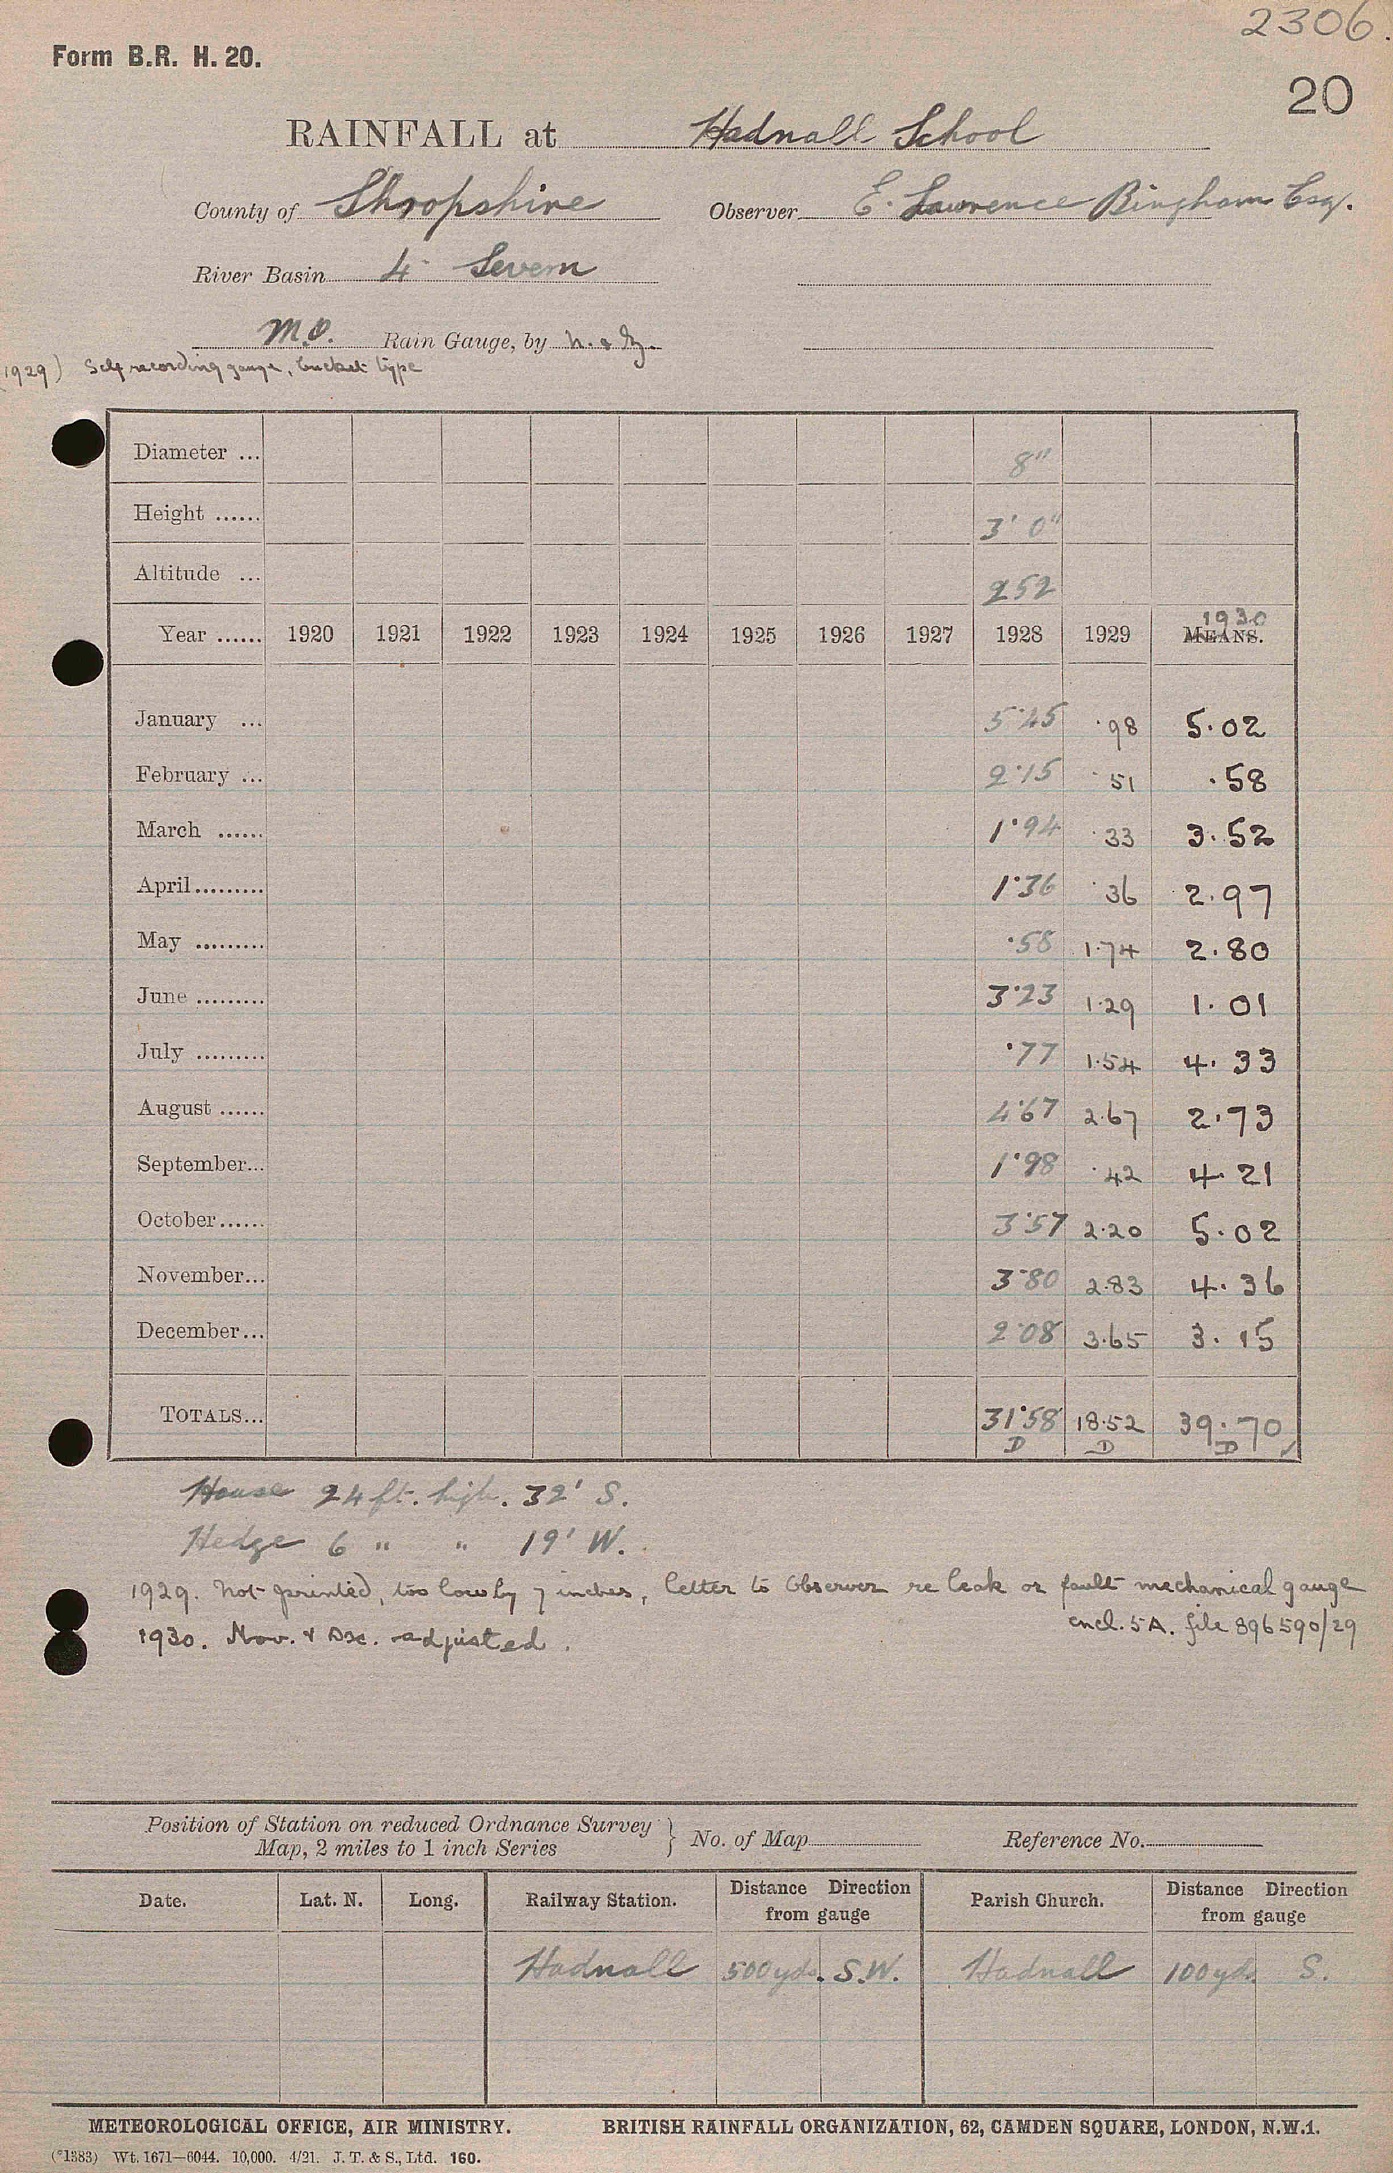 2306.
Form B.R. H. 20.
20
RAINFALL at Hadnall School
County of Shropshire Observer E. Lawrence Bingham Esq.
River Basin 4 Severn
M.O. Rain Gauge, by N. & Z.
(1929) Self recording gauge, bucket type
Diameter ... 8"
Height ...... 3' 0"
Altitude ... 252
1930
Year ...... 1920 1921 1922 1923 1924 1925 1926 1927 1928 1929 MEANS.
January ... 5·45 ·98 5·02
February ... 2·15 ·51 ·58
March ...... 1·94 ·33 3·52
April......... 1·36 ·36 2·97
May ......... ·58 1·74 2·80
June ......... 3·23 1·29 1·01
July ......... ·77 1·54 4·33
August ...... 4·67 2·67 2·73
September... 1·98 ·42 4·21
October...... 3·57 2·20 5·02
November... 3·80 2·83 4·36
December... 2·08 3·65 3·15
TOTALS... 31·58 18·52 39·70
D D D ✓
House 24 ft. high. 32' S.
Hedge 6 " " 19' W.
1929. Not printed, too low by 7 inches, letter to Observer re leak or fault mechanical gauge
encl. 5A. file 896590/29
1930. Nov. & Dec. adjusted.
Position of Station on reduced Ordnance Survey
Map, 2 miles to 1 inch Series } No. of Map Reference No.
Date. Lat. N. Long. Railway Station. Distance Direction from gauge Parish Church. Distance Direction from gauge
Hadnall 500 yds. S.W. Hadnall 100 yds. S.
METEOROLOGICAL OFFICE, AIR MINISTRY. BRITISH RAINFALL ORGANIZATION, 62, CAMDEN SQUARE, LONDON, N.W.1.
(*1383) Wt. 1671—6044. 10,000. 4/21. J. T. & S., Ltd. 160.